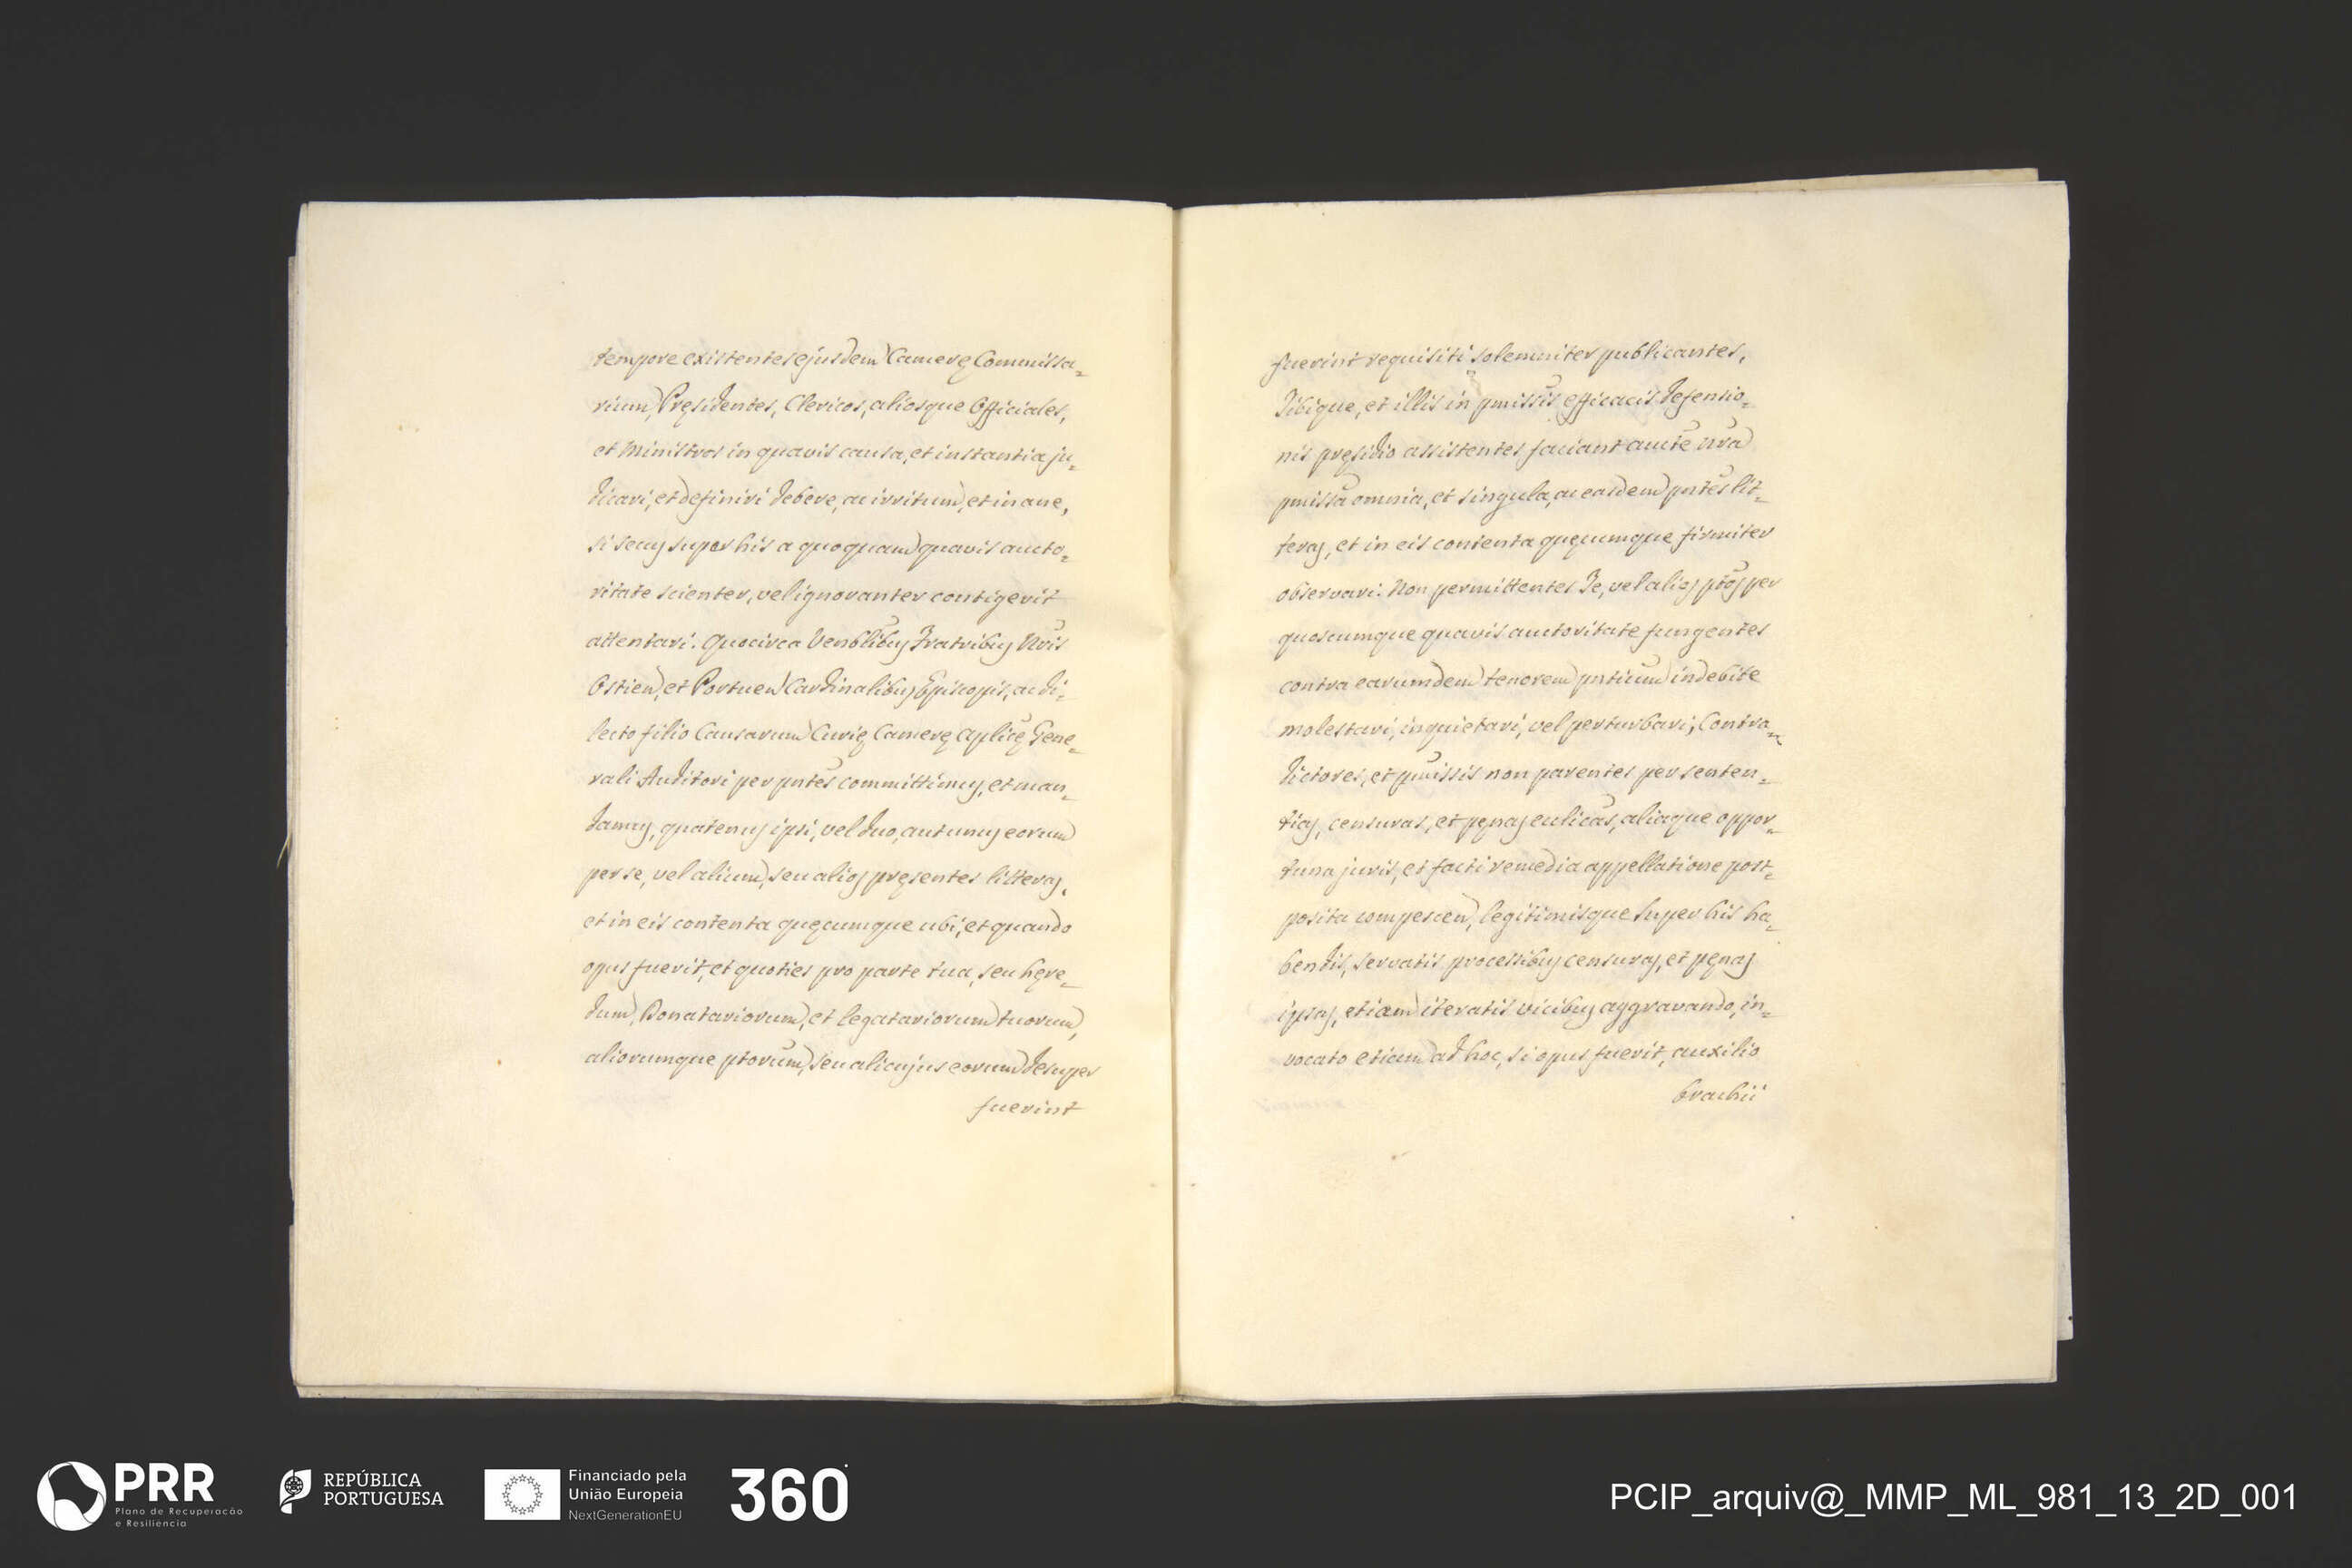 tempore existentes ejusdem Camerę Commissa=
rium, Pręsidentes, Clericos, aliosque Officiales,
et Ministros in quavis causa, et instantia ju=
dicari, et definiri debere, ac irritum, et inane,
si secus super his a quoquam quavis aucto=
ritate scienter, vel ignoranter contigerit
attentari. Quocirca Venblibus Fratribus Nris
Ostien, et Portuen Cardinalibus Episcopis, ac di=
lecto filio Causarum Curię Camerę Aplicę Gene=
rali Auditori per pntes committimus, et man=
damus, quatenus ipsi, vel duo, aut unus eorum
per se, vel alium, seu alios pręsentes litteras,
et in eis contenta quęcumque ubi, et quando
opus fuerit, et quoties pro parte tua, seu hęre=
dum, Donatariorum, et legatariorum tuorum,
aliorumque ptorum, seu alicujus eorum desuper
fuerint
fuerint requisiti solemniter publicantes,
Tibique, et illis in pmissis efficacis defensio=
nis pręsidio assistentes faciant aucte nra
pmissa omnia, et singula, ac easdem pntes lit=
teras, et in eis contenta quęcumque firmiter
observari. Non permittentes Te, vel alios ptos per
quoscumque quavis auctoritate fungentes
contra earumdem tenorem pntium indebite
molestari, inquietari, vel perturbari; Contra=
dictores, et pmissis non parentes per senten=
tias, censuras, et pęnas ecclicas, aliaque oppor=
tuna juris, et facti remedia appellatione post=
posita compescen, legitimisque super his ha=
bendis, servatis processibus censuras, et pęnas
ipsas, etiam iteratis vicibus aggravando, in=
vocato etiam ad hoc, si opus fuerit, auxilio
brachii
PRR
Plano de Recuperação
e Resiliência
REPÚBLICA
PORTUGUESA
Financiado pela
União Europeia
NextGenerationEU
360
PCIP_arquiv@_MMP_ML_981_13_2D_001